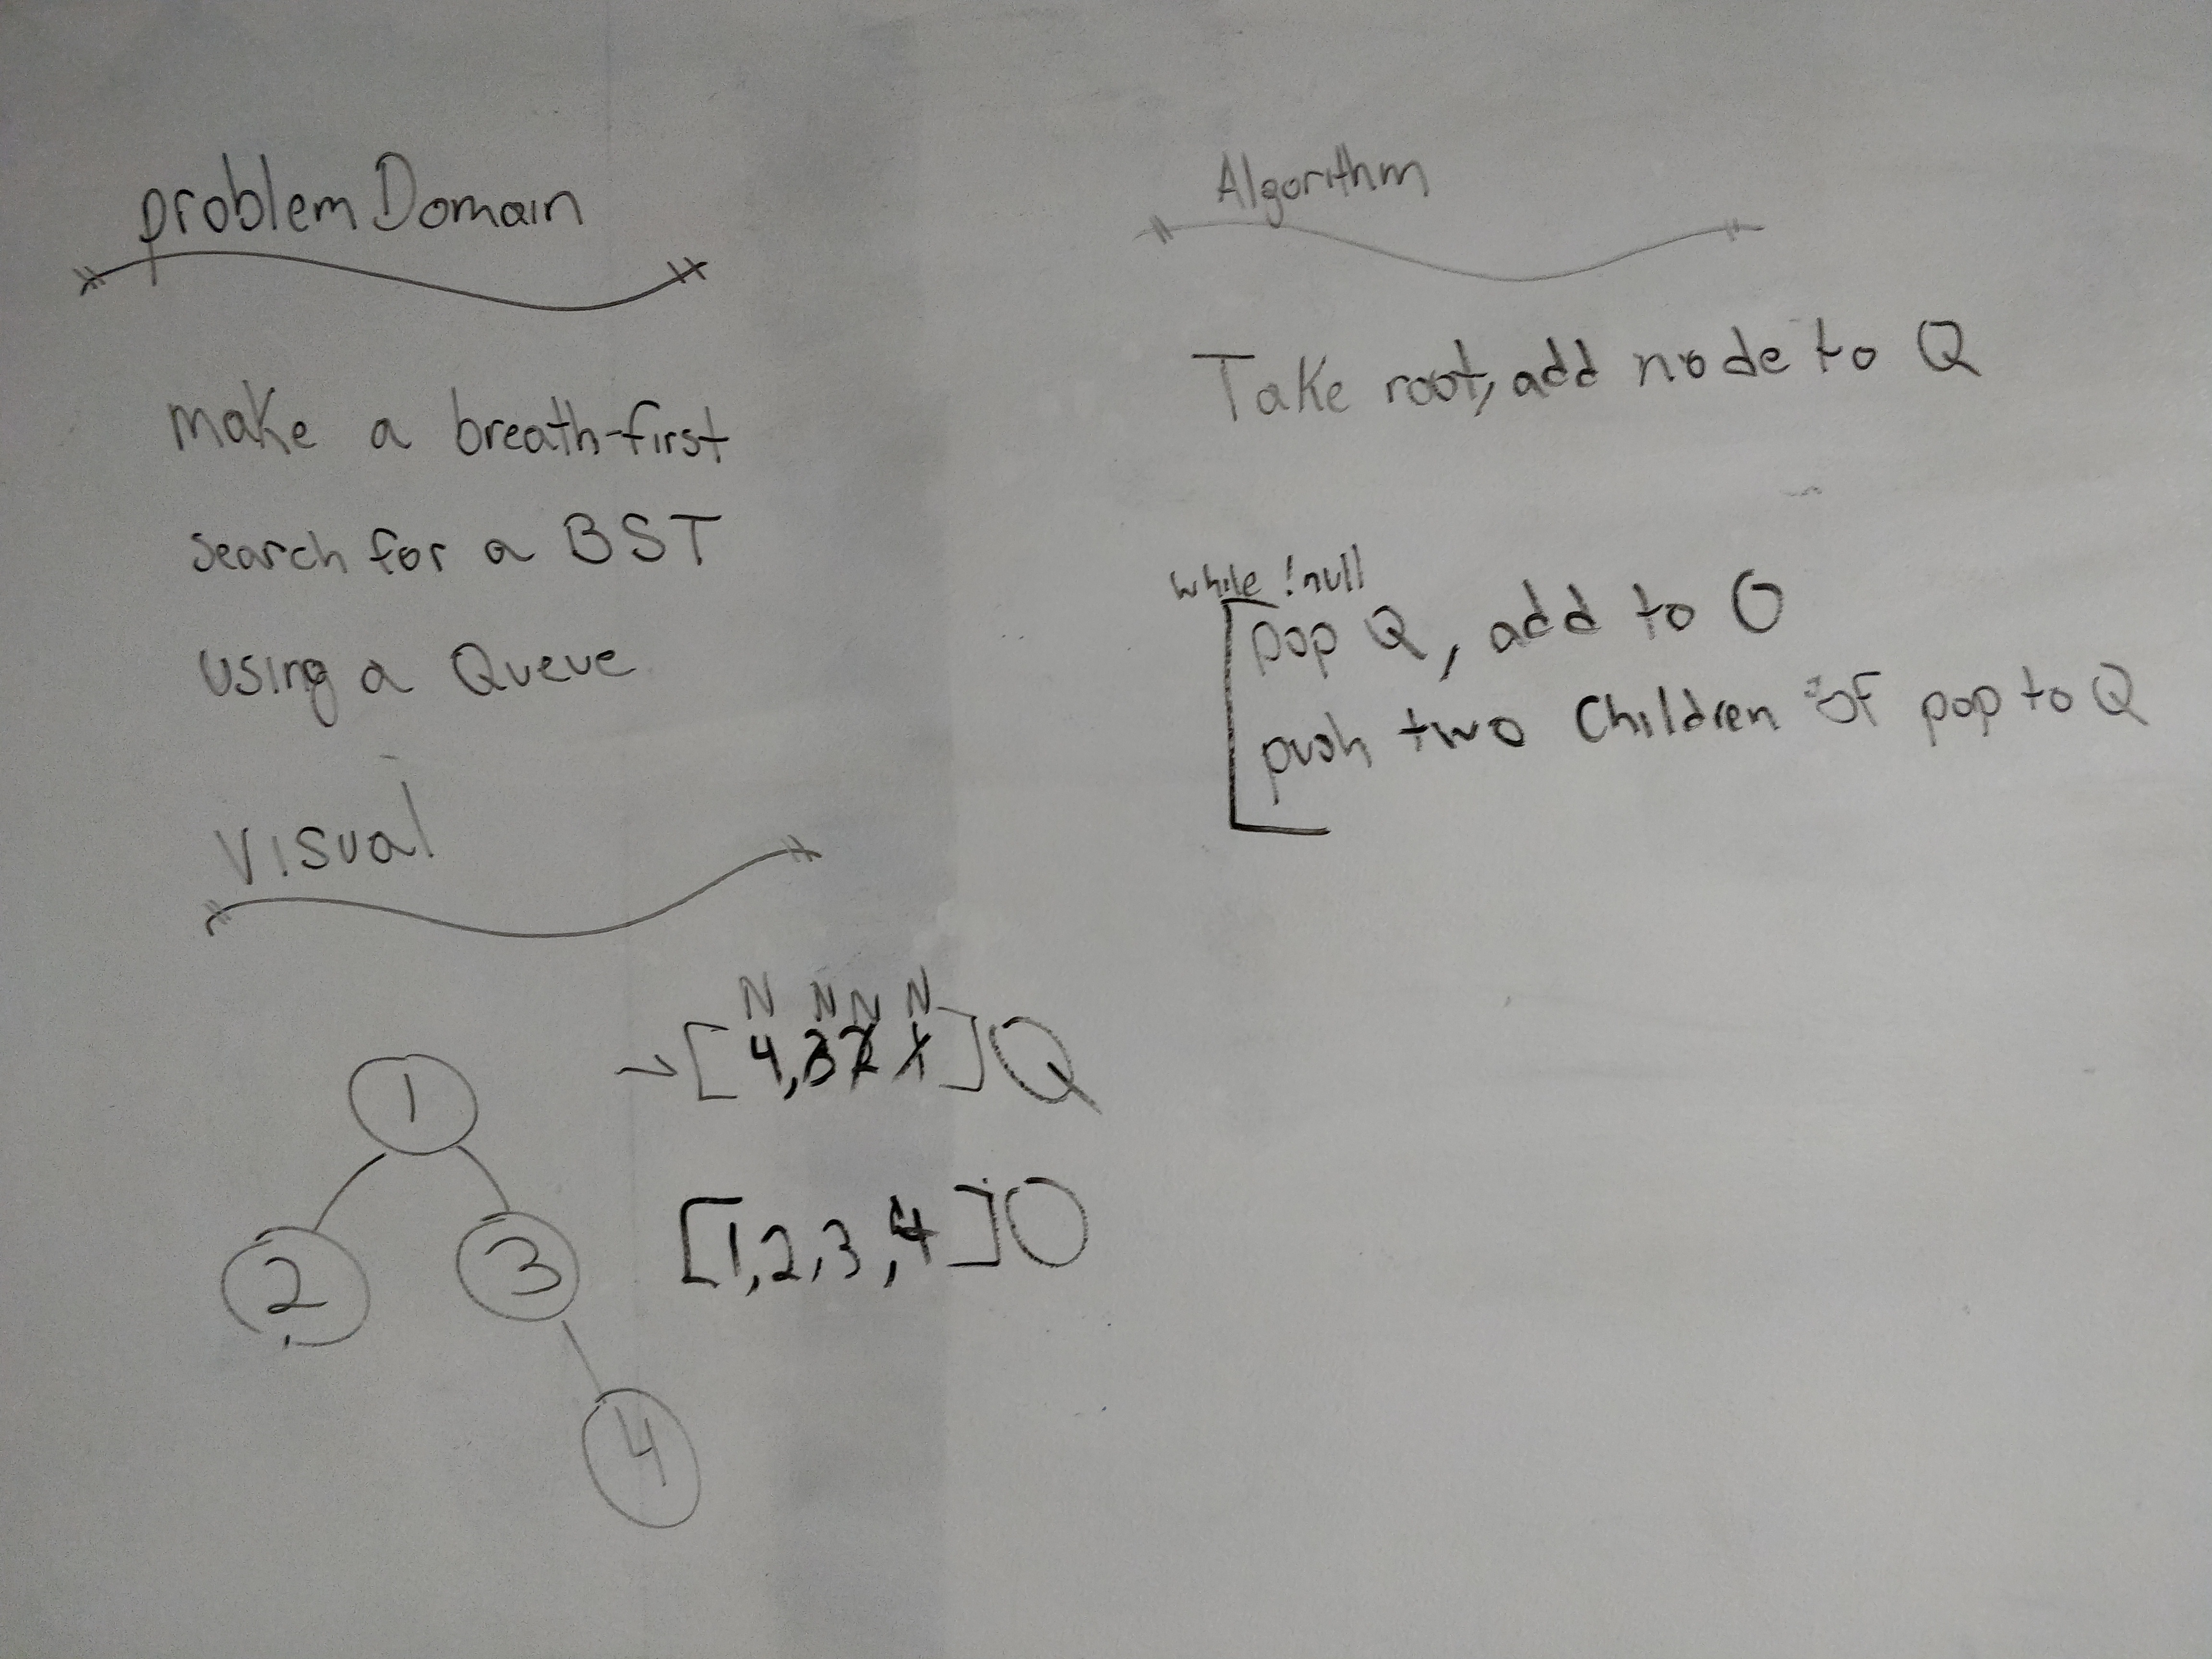 problem Domain
make a breath-first
search for a BST
using a Queue
Visual
N N N N
[4,3 2 1] Q
[1,2,3,4] O
1
2 3
4
Algorithm
Take root, add node to Q
while !null
pop Q, add to O
push two children of pop to Q